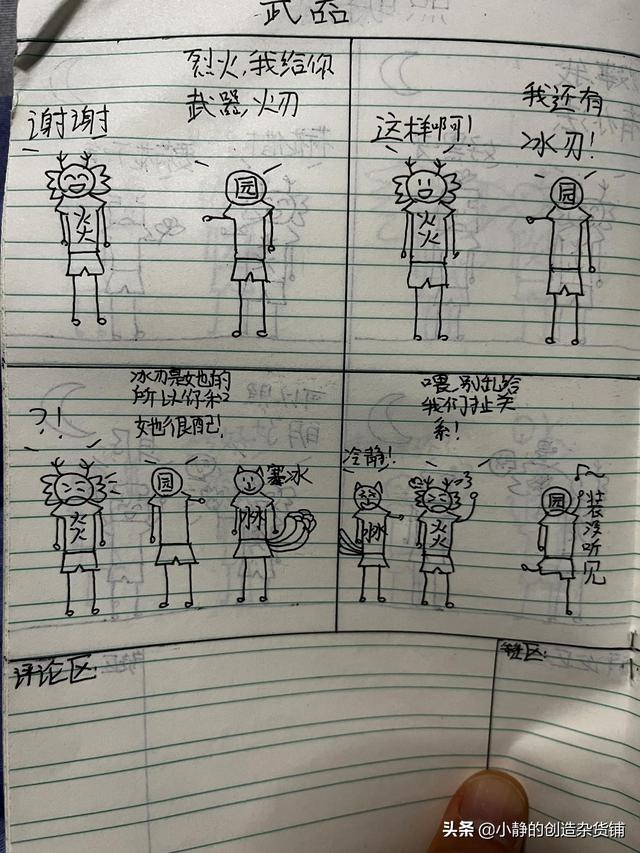 武器
烈火,我给你
武器,火刃
谢谢
炎
园
我还有
冰刃!
这样啊!
炎
园
冰刃是她的
所以你和
她很配!
?!
炎
园
寒冰
冰冰
喂,别乱给
我们扯关
系!
冷静!
冰冰
炎
园
装没听见
评论区:
头条 @小静的创造杂货铺